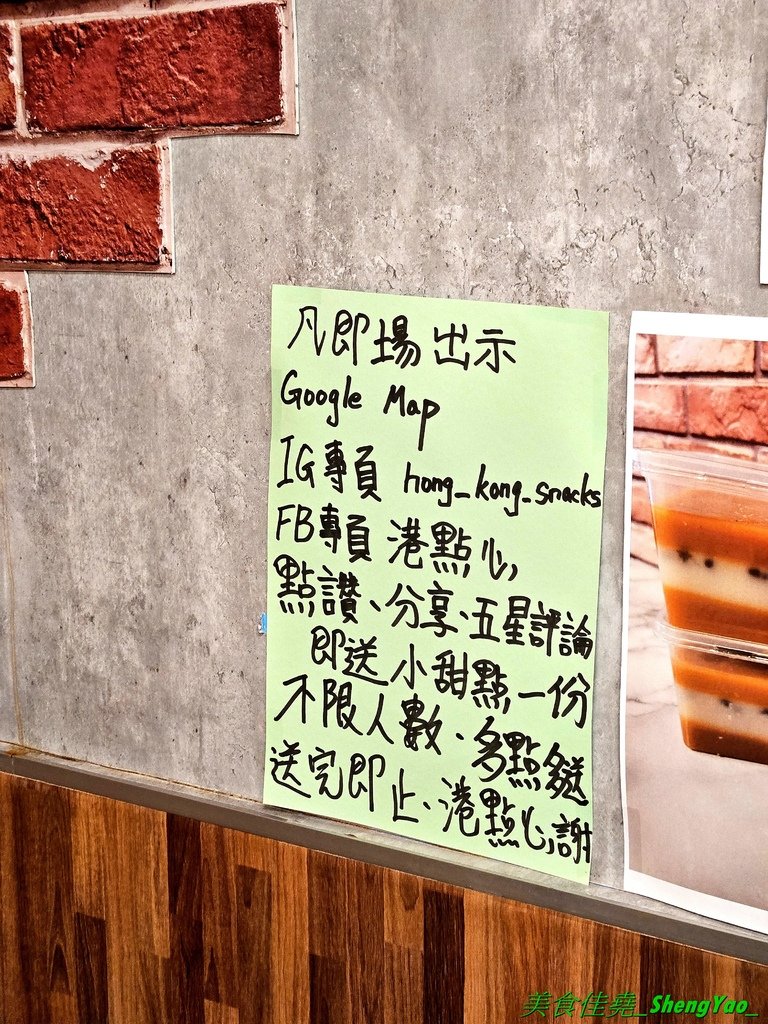 凡即場出示
Google Map
IG專頁 hong_kong_snacks
FB專頁 港點心
點讚、分享、五星評論
即送小甜點一份
不限人數、多點多送
送完即止、港點心謝
美食佳堯_ShengYao_